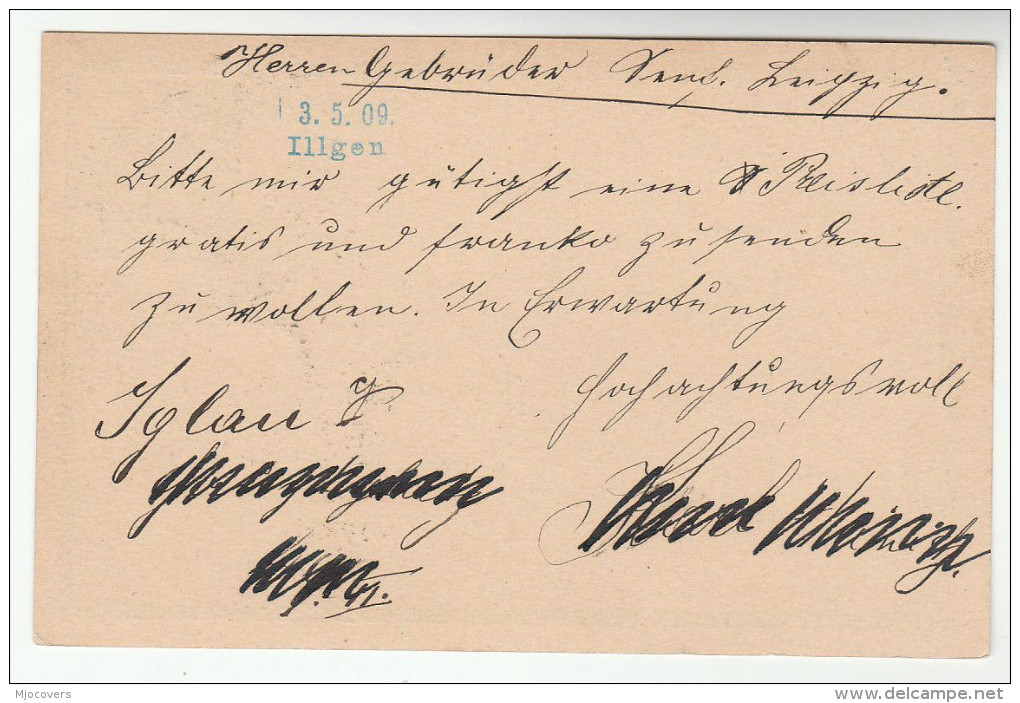 Herren Gebrüder Senf. Leipzig.
3. 5. 09.
Illgen
Bitte mir gütigst eine Preisliste.
gratis und franko zu senden
zu wollen. In Erwartung
hochachtungsvoll
Iglau
Mjocovers
www.delcampe.net